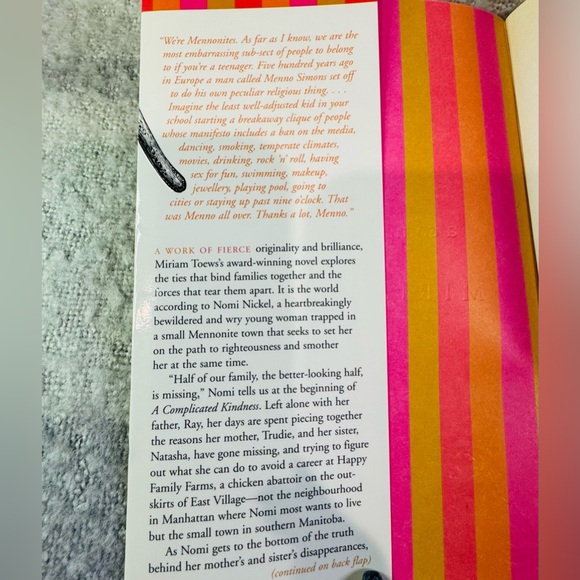 "We're Mennonites. As far as I know, we are the
most embarrassing sub-sect of people to belong
to if you're a teenager. Five hundred years ago
in Europe a man called Menno Simons set off
to do his own peculiar religious thing. . . .
Imagine the least well-adjusted kid in your
school starting a breakaway clique of people
whose manifesto includes a ban on the media,
dancing, smoking, temperate climates,
movies, drinking, rock 'n' roll, having
sex for fun, swimming, makeup,
jewellery, playing pool, going to
cities or staying up past nine o'clock. That
was Menno all over. Thanks a lot, Menno."
A WORK OF FIERCE originality and brilliance,
Miriam Toews's award-winning novel explores
the ties that bind families together and the
forces that tear them apart. It is the world
according to Nomi Nickel, a heartbreakingly
bewildered and wry young woman trapped in
a small Mennonite town that seeks to set her
on the path to righteousness and smother
her at the same time.
"Half of our family, the better-looking half,
is missing," Nomi tells us at the beginning of
A Complicated Kindness. Left alone with her
father, Ray, her days are spent piecing together
the reasons her mother, Trudie, and her sister,
Natasha, have gone missing, and trying to figure
out what she can do to avoid a career at Happy
Family Farms, a chicken abattoir on the out-
skirts of East Village—not the neighbourhood
in Manhattan where Nomi most wants to live
but the small town in southern Manitoba.
As Nomi gets to the bottom of the truth
behind her mother's and sister's disappearances,
(continued on back flap)